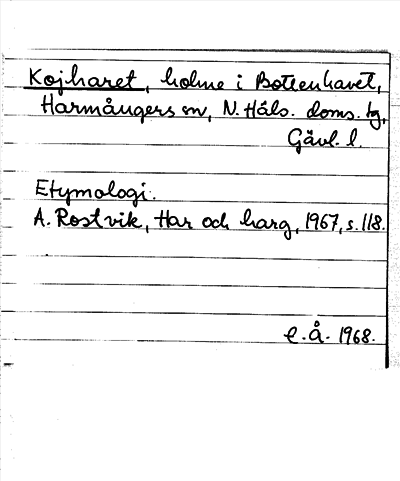 Kojharet, holme i Bottenhavet,
Harmångers sn, N. Häls. doms. tg,
Gävl. l.
Etymologi:
A. Rostvik, Har och harg, 1967, s. 118.
E. Å. 1968.